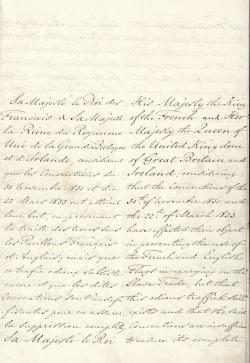 Sa Majesté le Roi des
Français et Sa Majesté
la Reine du Royaume
Uni de la Grande Bretagne
et d'Irlande, considérant
que les Conventions du
30 novembre 1831 et du
22 Mars 1833 ont atteint
leur but, en prévenant
la traite des noirs sous
les Pavillons Français
et Anglais, mais que
ce trafic odieux subsiste
encore et que les dites
Conventions sont insuf-
fisantes pour en assurer
la suppression complète,
Sa Majesté le Roi
His Majesty the King
of the French and Her
Majesty the Queen of
the United Kingdom
of Great Britain and
Ireland, considering
that the Conventions of the
30th of November 1831 and
the 22nd of March 1833
have effected their object
in preventing the use of
the French and English
Flags in carrying on the
Slave Trade, but that
this odious traffic still
exists and that the said
Conventions are insufficient
to ensure its complete